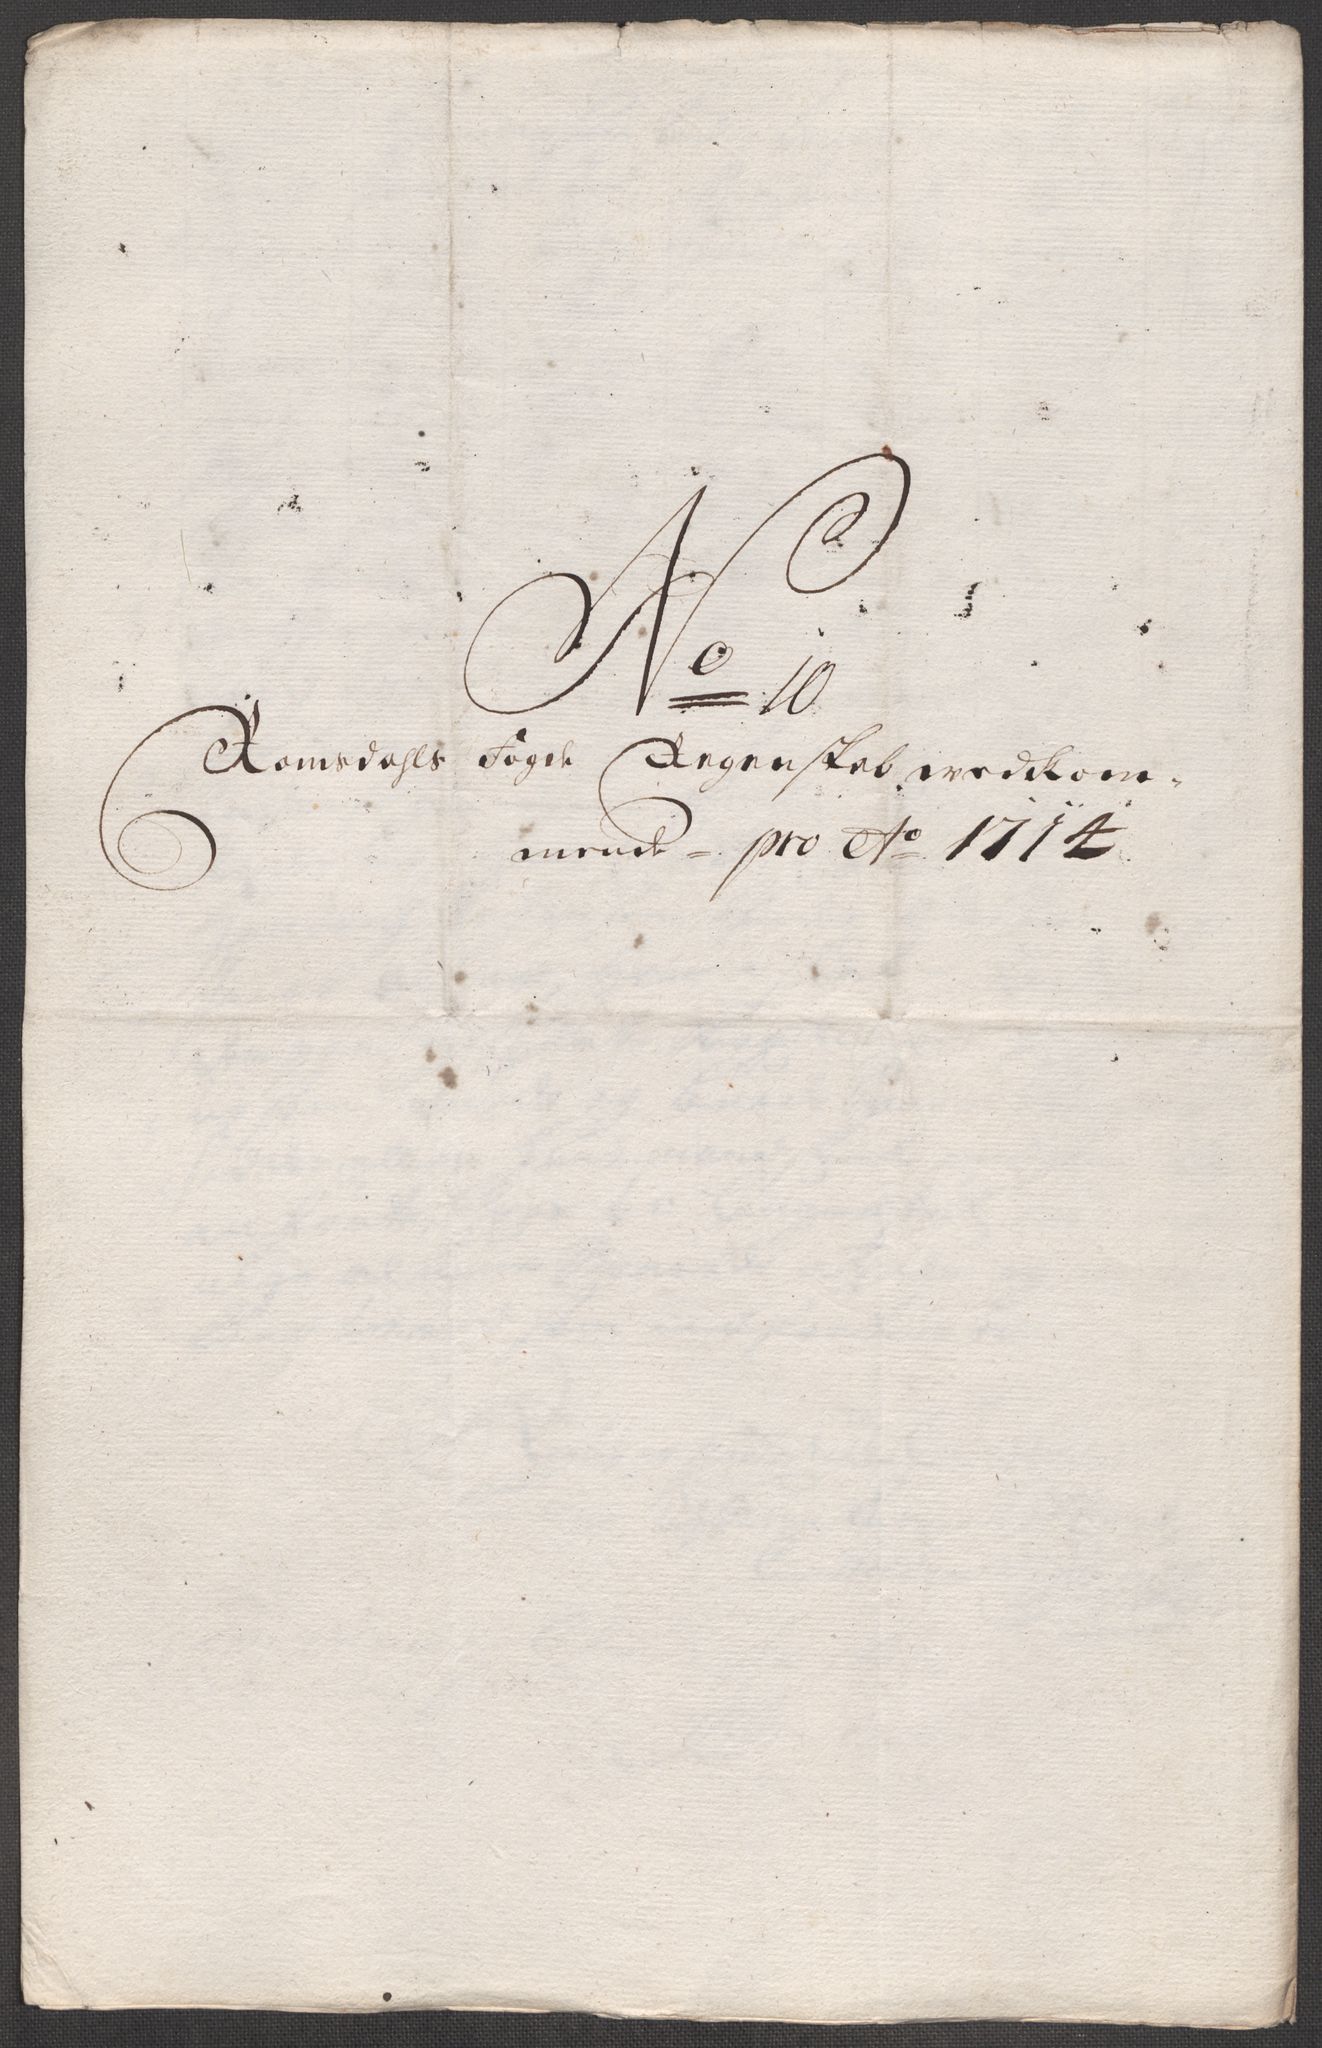 No 10
Romsdahls Fogde Regenskab wedkom-
mende - pro Ao 1714